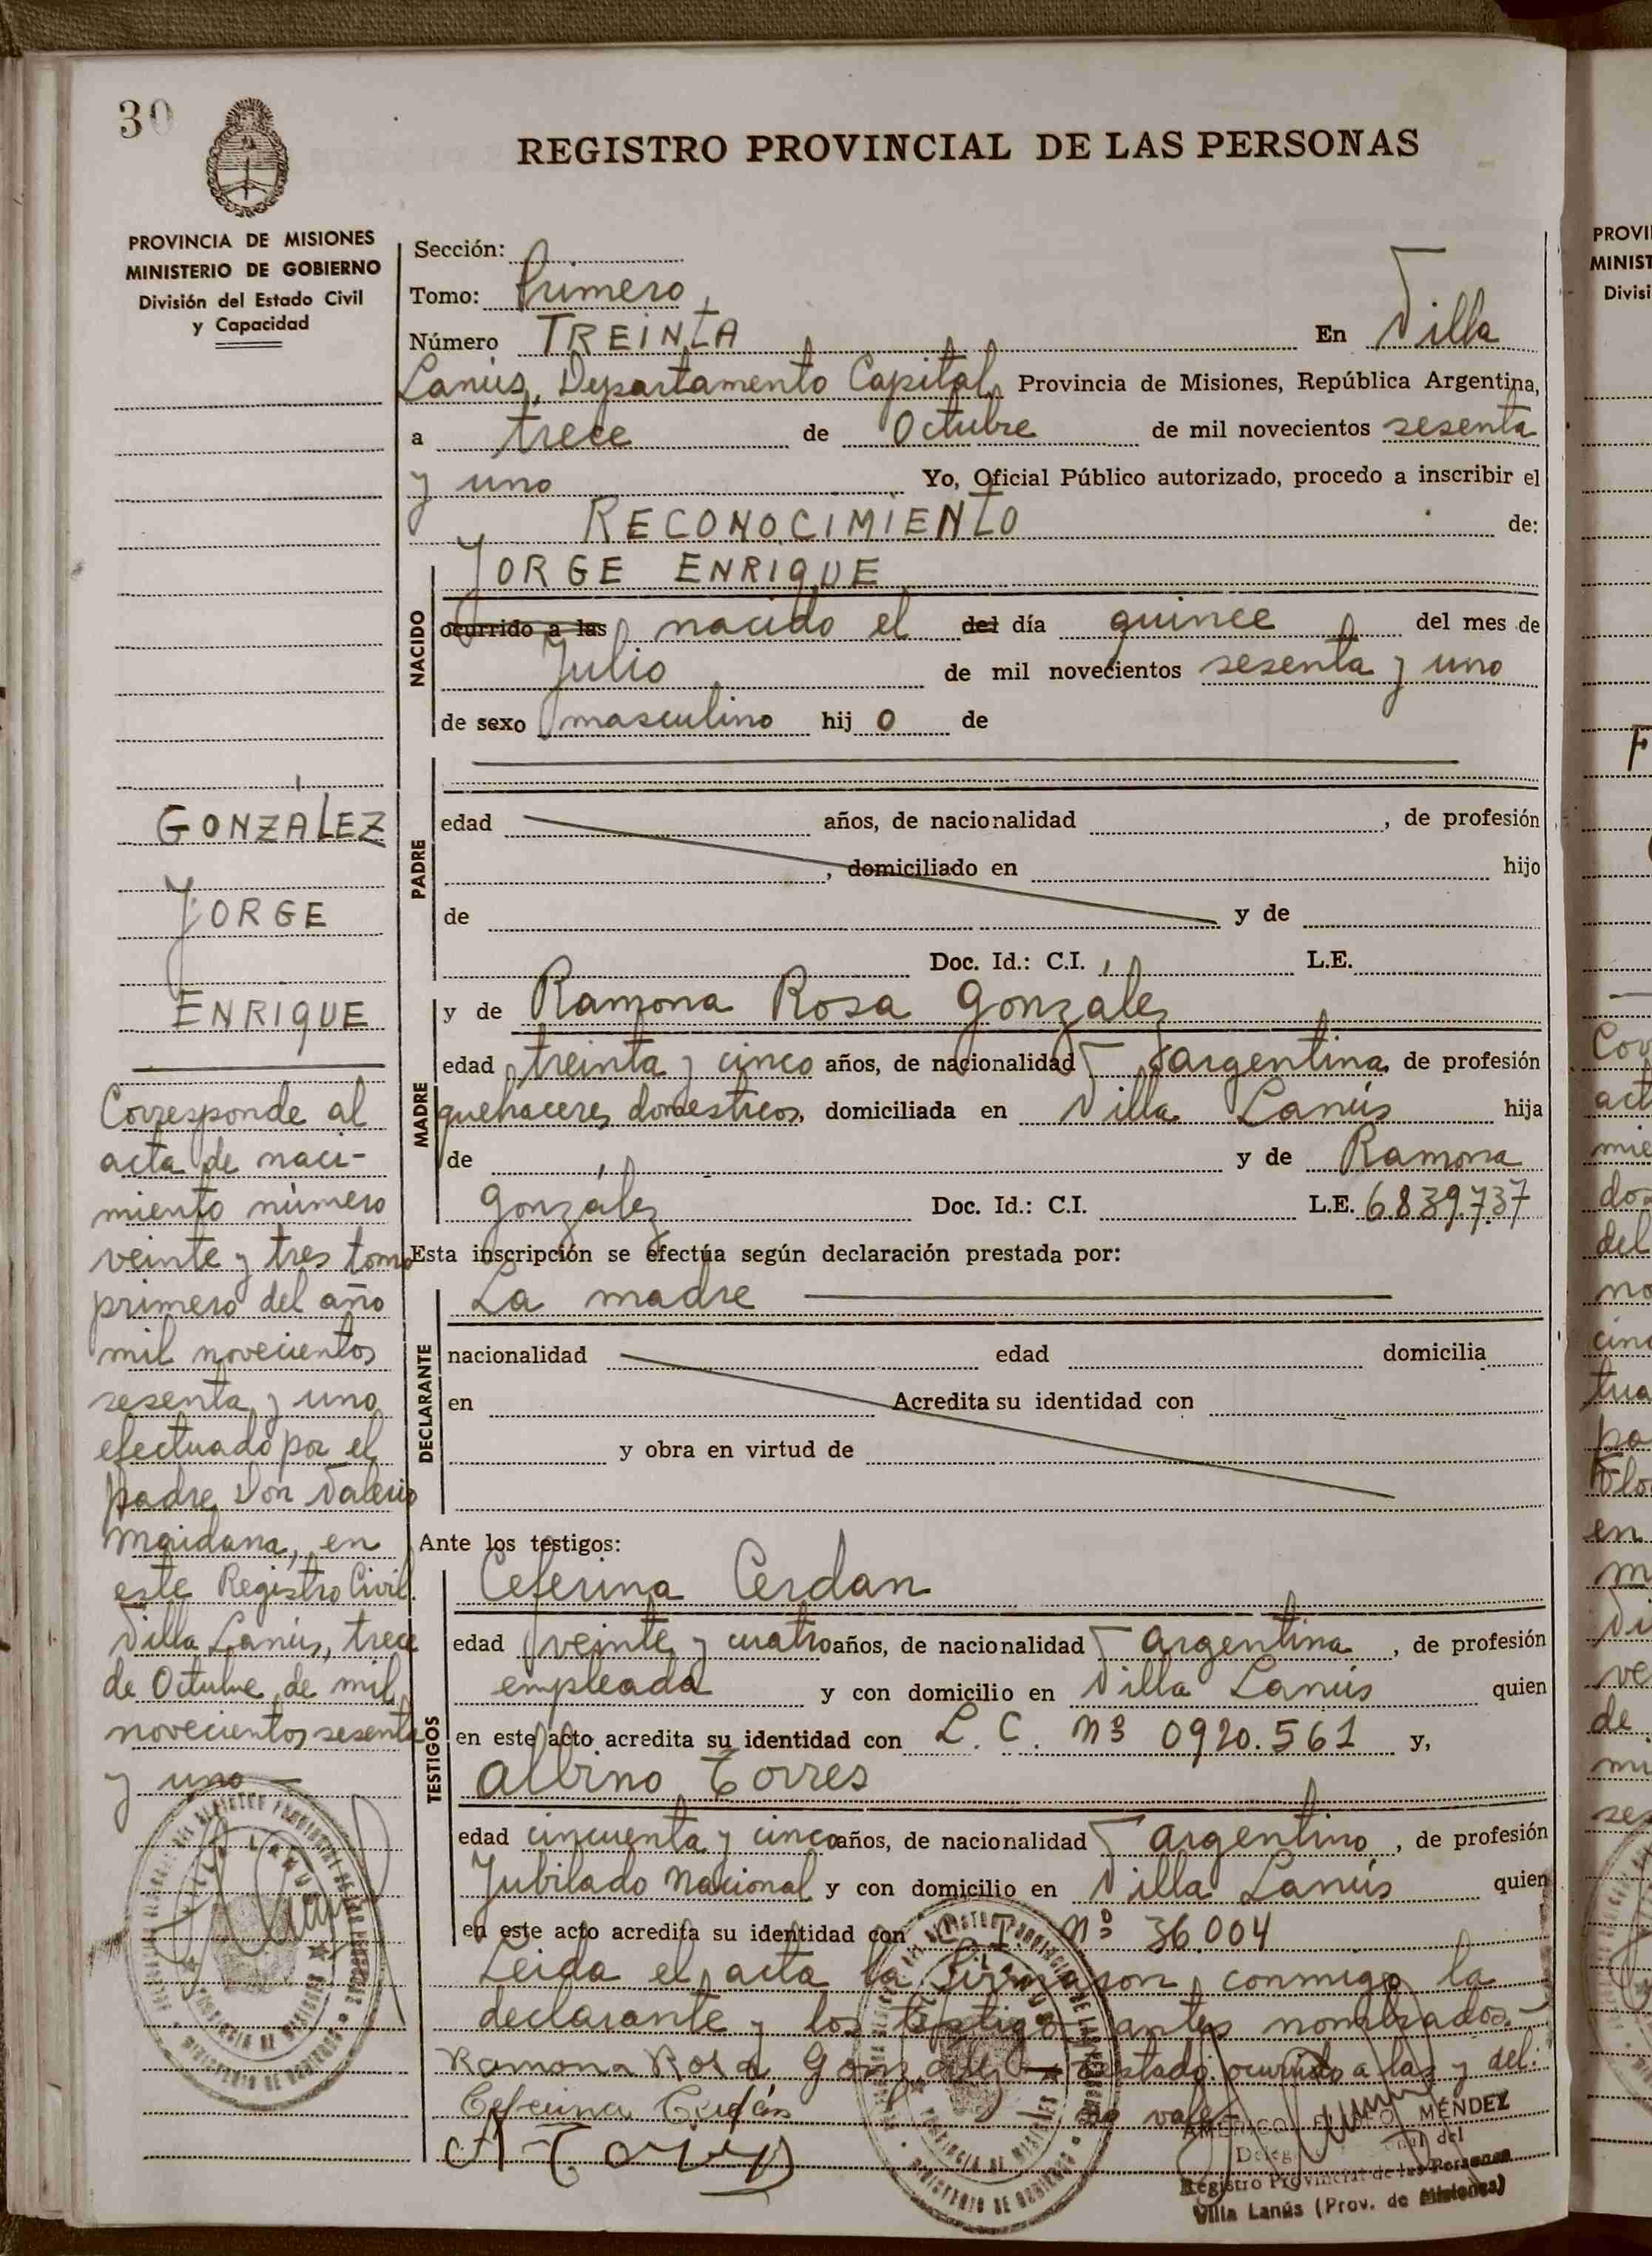 30
REGISTRO PROVINCIAL DE LAS PERSONAS
PROVINCIA DE MISIONES
MINISTERIO DE GOBIERNO
División del Estado Civil
y Capacidad
GONZALEZ
JORGE
ENRIQUE
Corresponde al
acta de naci-
miento número
veinte y tres tomo
primero del año
mil novecientos
sesenta y uno
efectuado por el
padre Don Valerio
Maidana, en
este Registro Civil.
Villa Lanús, trece
de Octubre de mil
novecientos sesenta
y uno
Sección:
Tomo: Primero
Número TREINTA En Villa
Lanús, Departamento Capital, Provincia de Misiones, República Argentina,
a trece de Octubre de mil novecientos sesenta
y uno Yo, Oficial Público autorizado, procedo a inscribir el
RECONOCIMIENTO de:
NACIDO
JORGE ENRIQUE
ocurrido a las nacido el del día quince del mes de
Julio de mil novecientos sesenta y uno
de sexo masculino hij o de
PADRE
edad años, de nacionalidad , de profesión
, domiciliado en hijo
de y de
Doc. Id.: C.I. L.E.
MADRE
y de Ramona Rosa González
edad treinta y cinco años, de nacionalidad argentina, de profesión
quehaceres domesticos, domiciliada en Villa Lanús hija
de y de Ramona
González Doc. Id.: C.I. L.E. 6839.737
Esta inscripción se efectúa según declaración prestada por:
DECLARANTE
La madre
nacionalidad edad domicilia
en Acredita su identidad con
y obra en virtud de
Ante los testigos:
TESTIGOS
Ceferina Cerdan
edad veinte y cuatro años, de nacionalidad argentina, de profesión
empleada y con domicilio en Villa Lanús quien
en este acto acredita su identidad con L. C. Nº 0920.561 y,
Albino Torres
edad cincuenta y cinco años, de nacionalidad argentino, de profesión
Jubilado Nacional y con domicilio en Villa Lanús quien
en este acto acredita su identidad con Nº 36.004
Leida el acta la firmaron conmigo la
declarante y los testigos antes nombrados.-
Ramona Rosa Gonzalez - Testado: ocurrido a las y del:
Ceferina Cerdán no vale
A Torres
MÉNDEZ
Registro Provincial de las Personas
Villa Lanús (Prov. de Misiones)